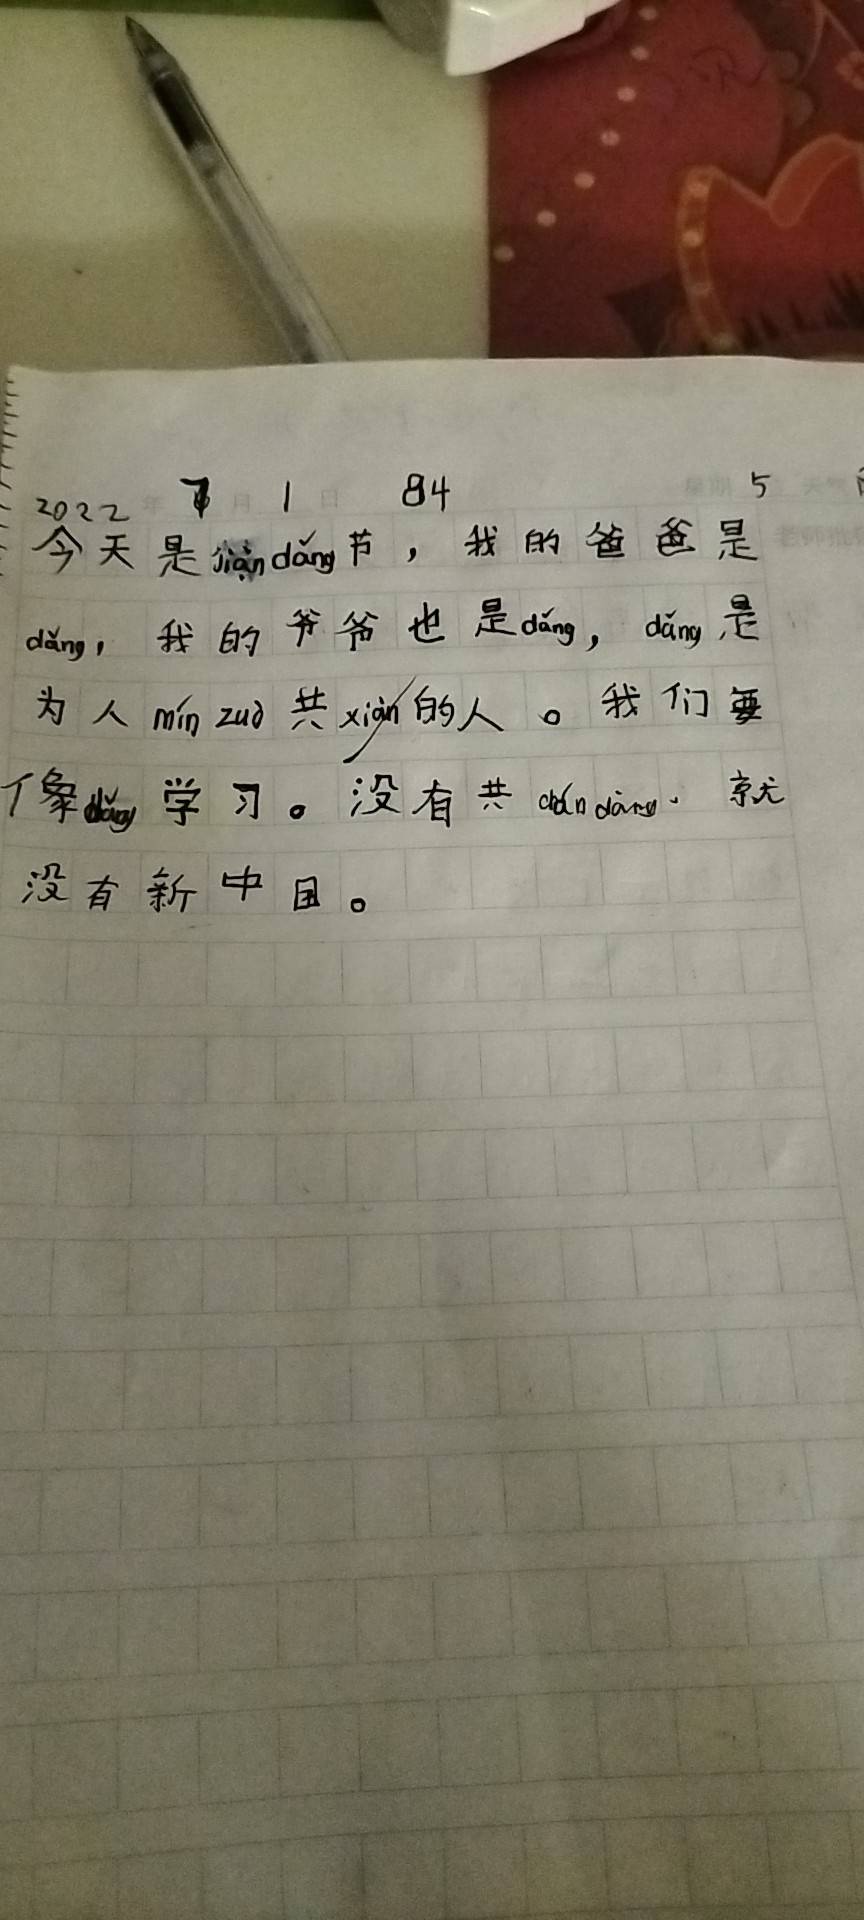 2022 年 7 月 1 日 84 星期 5 天气
今天是jiàndǎng节，我的爸爸是
dǎng，我的爷爷也是dǎng，dǎng是
为人mín zuò共xiàn的人。我们要
像dǎng学习。没有共chǎndǎng．就
没有新中国。